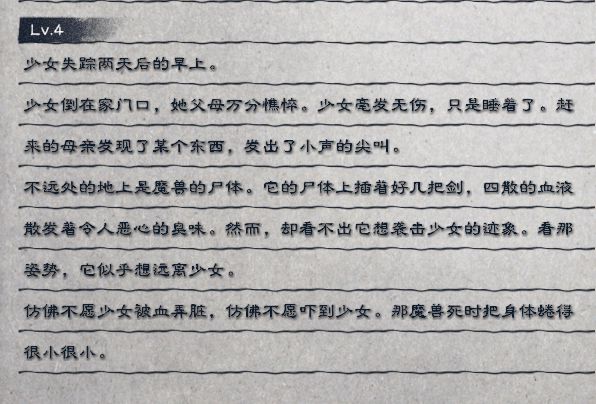 Lv.4
少女失踪两天后的早上。
少女倒在家门口，她父母万分憔悴。少女毫发无伤，只是睡着了。赶
来的母亲发现了某个东西，发出了小声的尖叫。
不远处的地上是魔兽的尸体。它的尸体上插着好几把剑，四散的血液
散发着令人恶心的臭味。然而，却看不出它想袭击少女的迹象。看那
姿势，它似乎想远离少女。
仿佛不愿少女被血弄脏，仿佛不愿吓到少女。那魔兽死时把身体蜷得
很小很小。